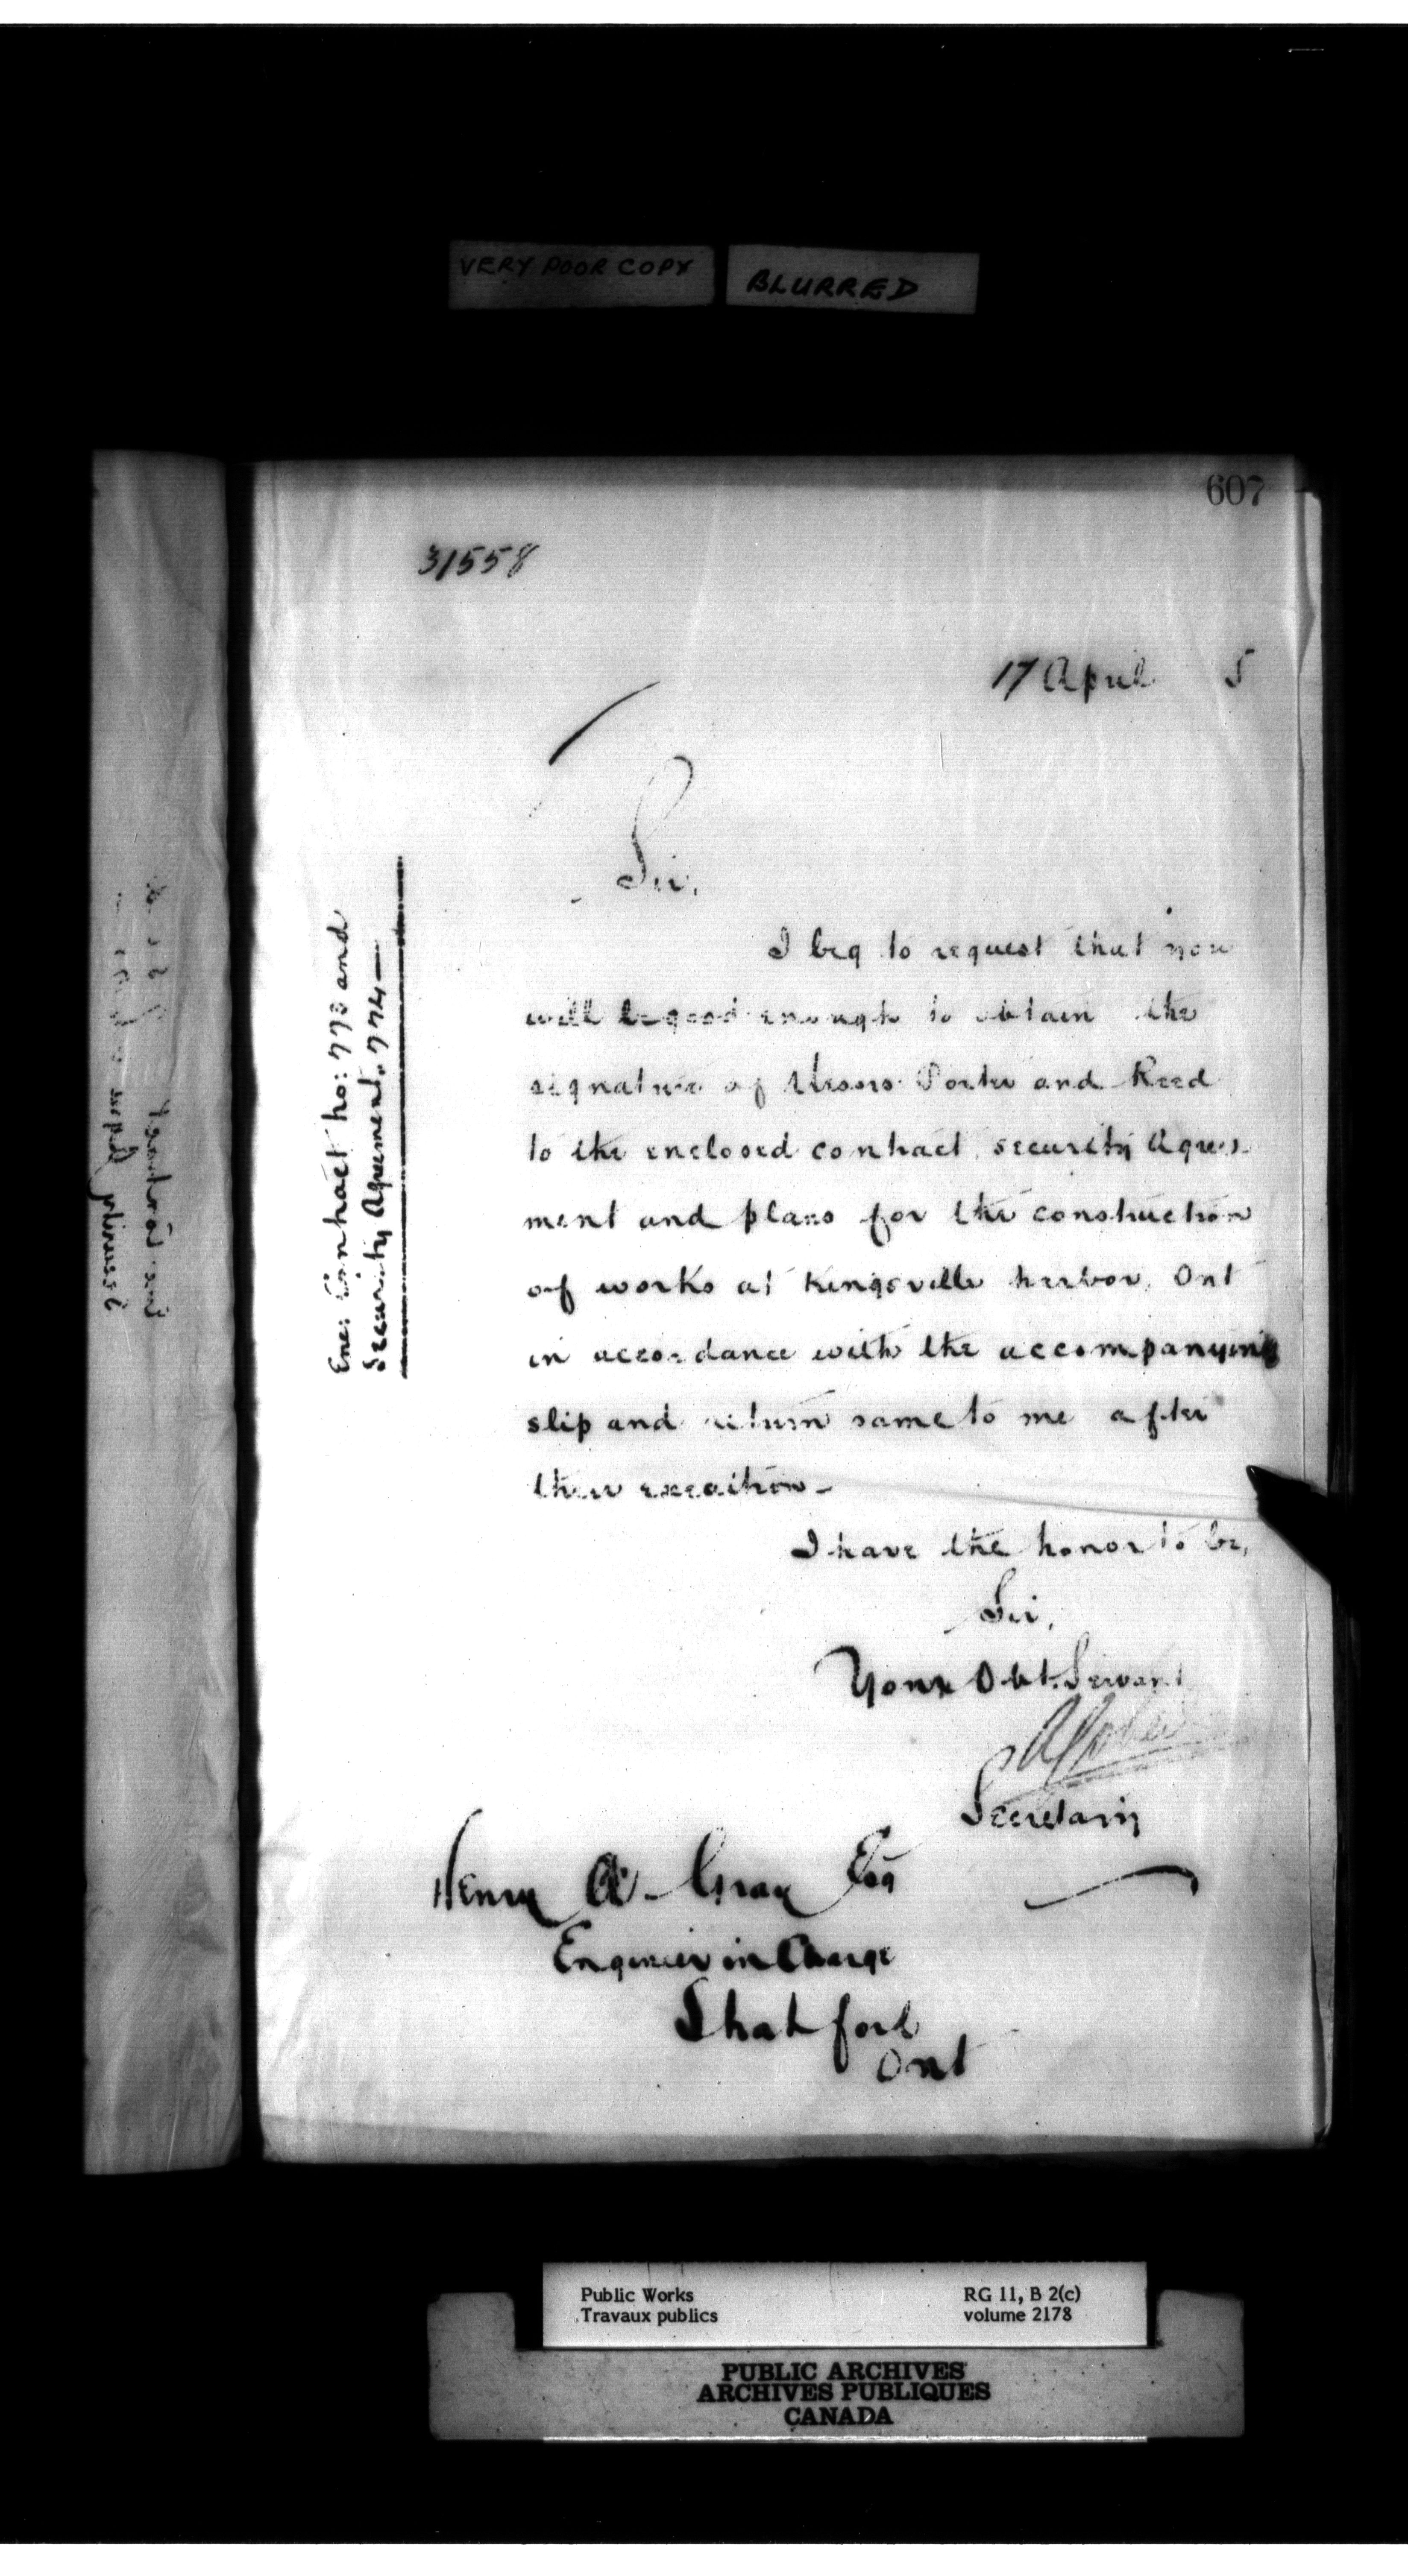 VERY POOR COPY
BLURRED
607
31558
17 April 5
Sir,
I beg to request that you
will be good enough to obtain the
signature of Messrs Porter and Reed
to the enclosed contract, security Agree-
ment and plans for the construction
of works at Kingsville harbor, Ont
in accordance with the accompanying
slip and return same to me after
their execution -
I have the honor to be,
Sir,
Your Obt. Servant
Secretary
Henry A. Gray Esq
Engineer in Charge
Stratford
Ont
Enc: Contract No: 773 and
Security Agreement. 774 —
Public Works
Travaux publics
RG 11, B 2(c)
volume 2178
PUBLIC ARCHIVES
ARCHIVES PUBLIQUES
CANADA